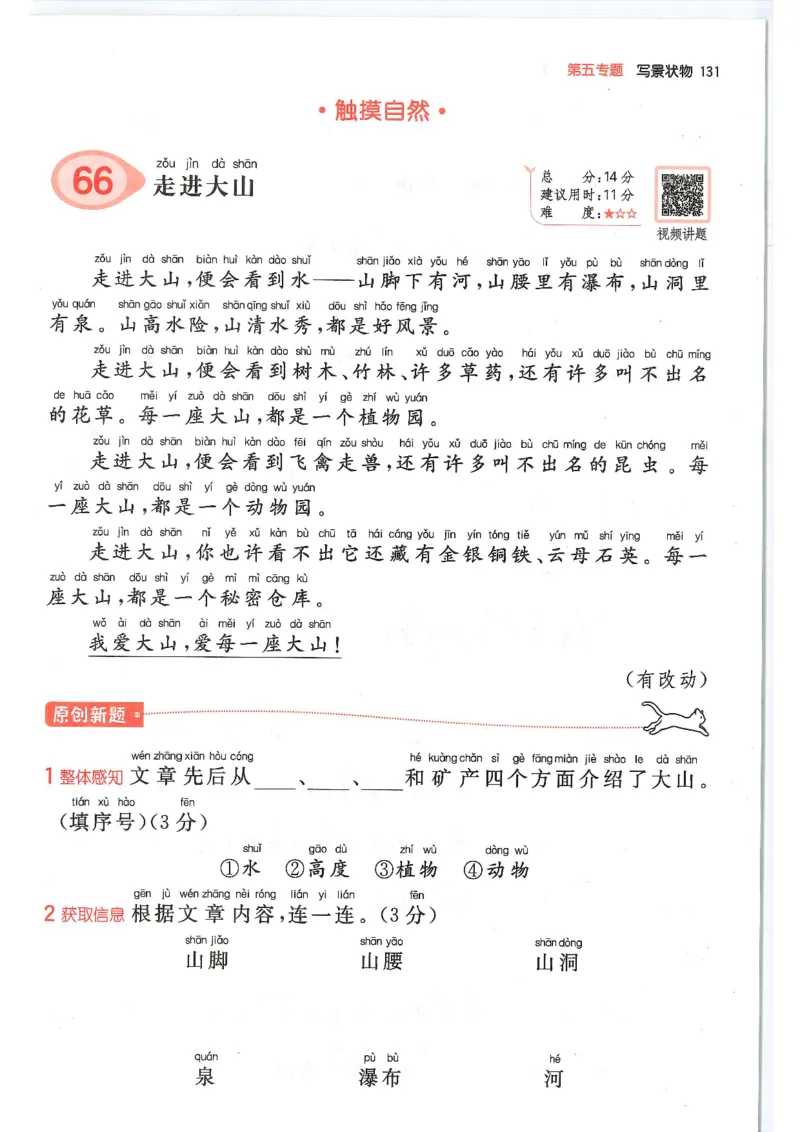 第五专题 写景状物 131
·触摸自然·
zǒu jìn dà shān
66 走进大山
总 分:14分
建议用时:11分
难 度:★☆☆
视频讲题
zǒu jìn dà shān biàn huì kàn dào shuǐ shān jiǎo xià yǒu hé shān yāo lǐ yǒu pù bù shān dòng lǐ
走进大山,便会看到水——山脚下有河,山腰里有瀑布,山洞里
yǒu quán shān gāo shuǐ xiǎn shān qīng shuǐ xiù dōu shì hǎo fēng jǐng
有泉。山高水险,山清水秀,都是好风景。
zǒu jìn dà shān biàn huì kàn dào shù mù zhú lín xǔ duō cǎo yào hái yǒu xǔ duō jiào bù chū míng
走进大山,便会看到树木、竹林、许多草药,还有许多叫不出名
de huā cǎo měi yí zuò dà shān dōu shì yí gè zhí wù yuán
的花草。每一座大山,都是一个植物园。
zǒu jìn dà shān biàn huì kàn dào fēi qín zǒu shòu hái yǒu xǔ duō jiào bù chū míng de kūn chóng měi
走进大山,便会看到飞禽走兽,还有许多叫不出名的昆虫。每
yí zuò dà shān dōu shì yí gè dòng wù yuán
一座大山,都是一个动物园。
zǒu jìn dà shān nǐ yě xǔ kàn bù chū tā hái cáng yǒu jīn yín tóng tiě yún mǔ shí yīng měi yí
走进大山,你也许看不出它还藏有金银铜铁、云母石英。每一
zuò dà shān dōu shì yí gè mì mì cāng kù
座大山,都是一个秘密仓库。
wǒ ài dà shān ài měi yí zuò dà shān
我爱大山,爱每一座大山!
(有改动)
原创新题
wén zhāng xiān hòu cóng hé kuàng chǎn sì gè fāng miàn jiè shào le dà shān
1 整体感知 文章先后从____、____、____和矿产四个方面介绍了大山。
tián xù hào fēn
(填序号)(3分)
shuǐ gāo dù zhí wù dòng wù
①水 ②高度 ③植物 ④动物
gēn jù wén zhāng nèi róng lián yi lián fēn
2 获取信息 根据文章内容,连一连。(3分)
shān jiǎo shān yāo shān dòng
山脚 山腰 山洞
quán pù bù hé
泉 瀑布 河